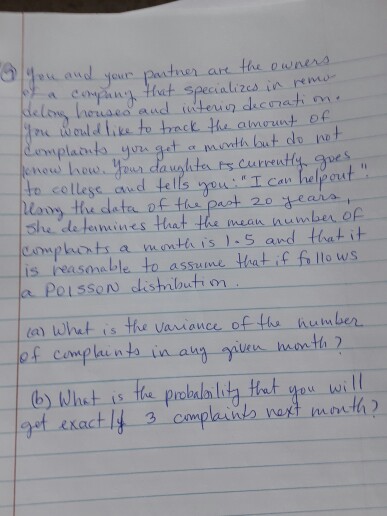 You and your partner are the owners
of a company that specializes in remo
deling houses and interior decoration.
You would like to track the amount of
complaints you get a month but do not
know how. Your daughter is currently goes
to college and tells you: "I can help out".
Using the data of the past 20 years,
she determines that the mean number of
complaints a month is 1.5 and that it
is reasonable to assume that if follows
a POISSON distribution.
(a) What is the variance of the number
of complaints in any given month?
(b) What is the probability that you will
get exactly 3 complaints next month?